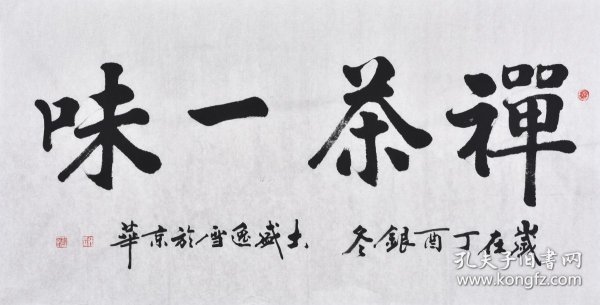 禪茶一味
歲在丁酉銀冬 士盛逸雪於京華
孔夫子旧书网
www.kongfz.com